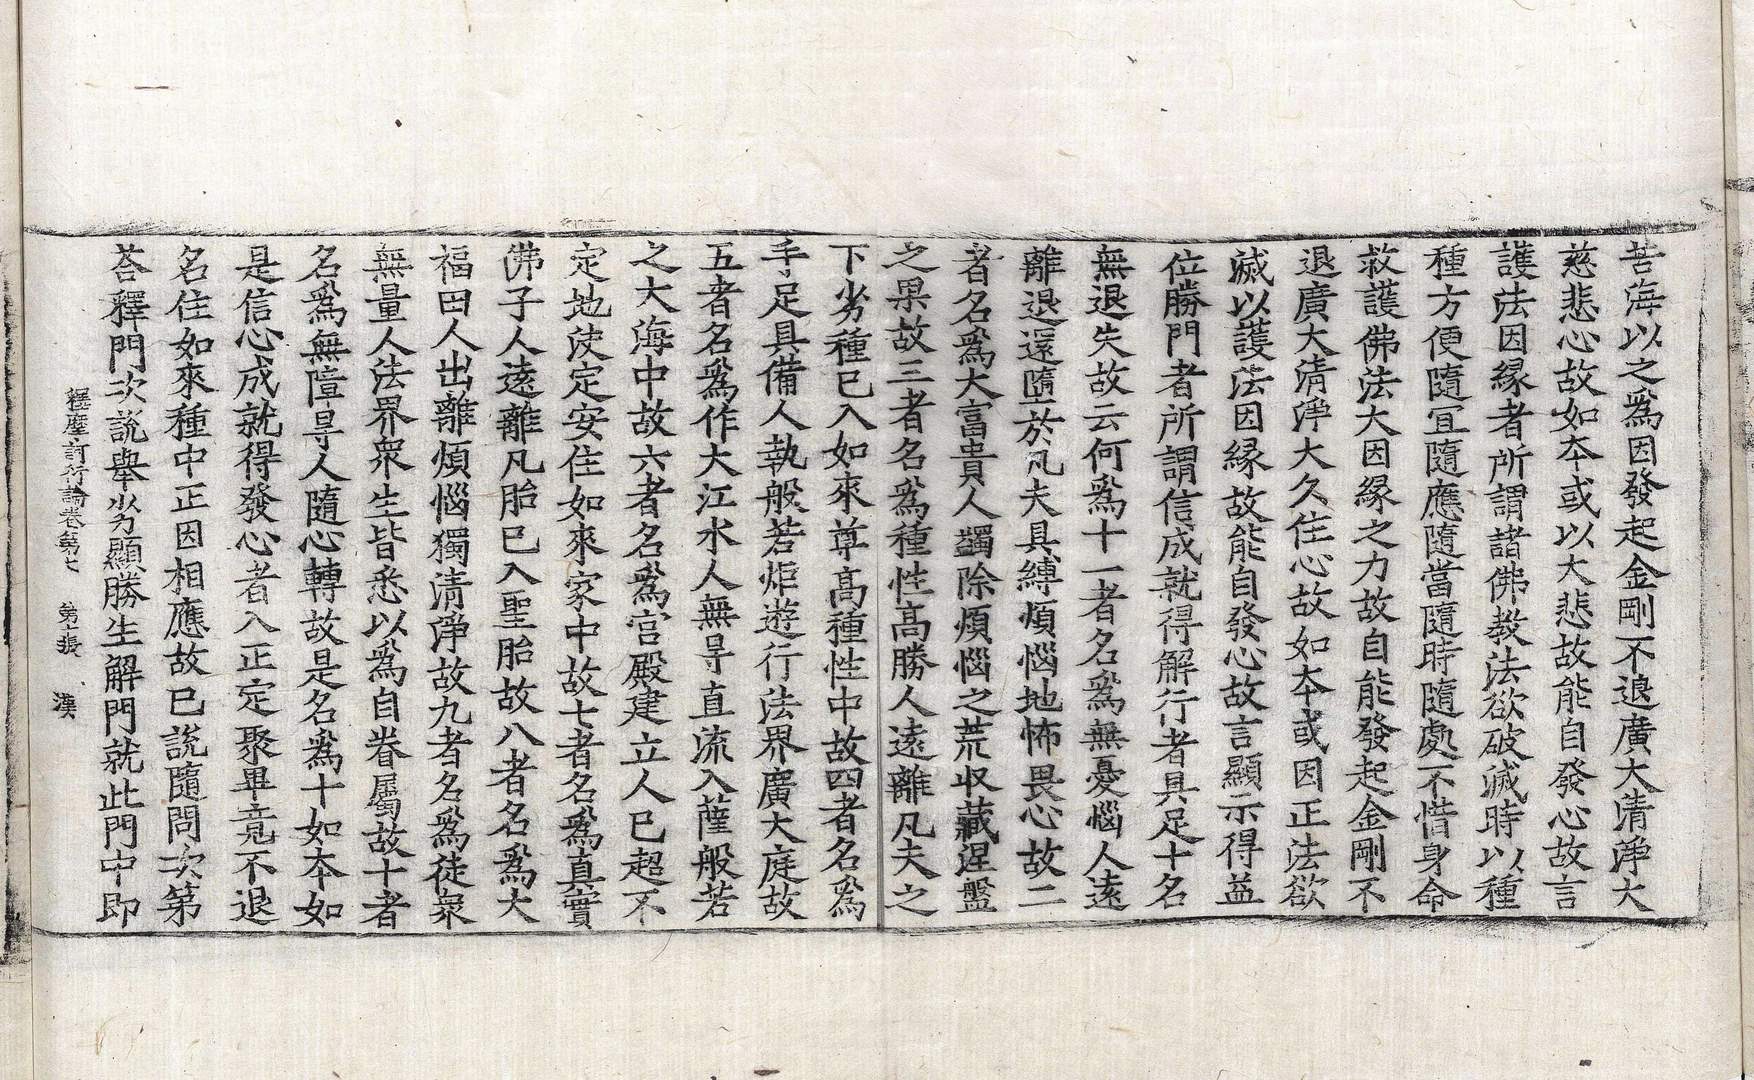 苦海以之爲因發起金剛不退廣大清淨大
慈悲心故如夲或以大悲故能自發心故言
護法因緣者所謂諸佛教法欲破滅時以種
種方便隨冝隨應隨當隨時隨處不惜身命
救護佛法大因緣之力故自能發起金剛不
退廣大清淨大久住心故如夲或因正法欲
滅以護法因緣故能自發心故言顯示得益
位勝門者所謂信成就得解行者具足十名
無退失故云何爲十一者名爲無憂惱人遠
離退還墮於凡夫具縛煩惱地怖畏心故二
者名爲大富貴人蠲除煩惱之荒収藏涅盤
之果故三者名爲種性高勝人遠離凡夫之
下劣種已入如來尊高種性中故四者名爲
手足具備人執般若炬遊行法界廣大庭故
五者名爲作大江水人無㝵直流入薩般若
之大海中故六者名爲宫殿建立人已超不
定地决定安住如來家中故七者名爲真實
佛子人遠離凡胎已入聖胎故八者名爲大
福田人出離煩惱獨清淨故九者名爲徒衆
無量人法界衆生皆悉以爲自眷屬故十者
名爲無障㝵人隨心轉故是名爲十如夲如
是信心成就得發心者入正定聚畢竟不退
名住如來種中正因相應故已說隨問次第
荅釋門次說舉劣顯勝生解門就此門中即
釋摩訶衍論卷第七 第十張 漢